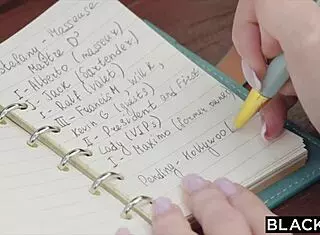 Stefany - Masseuse
Maître D'
I- Alberto (masseur)
I- Jack (bartender)
I- Ralf (valet)
III- Francis M, Will K,
Kevin G (guests)
II- President and First
Lady (VIPs)
I- Maximo (former owner)
Pending - Hollywood
BLACK